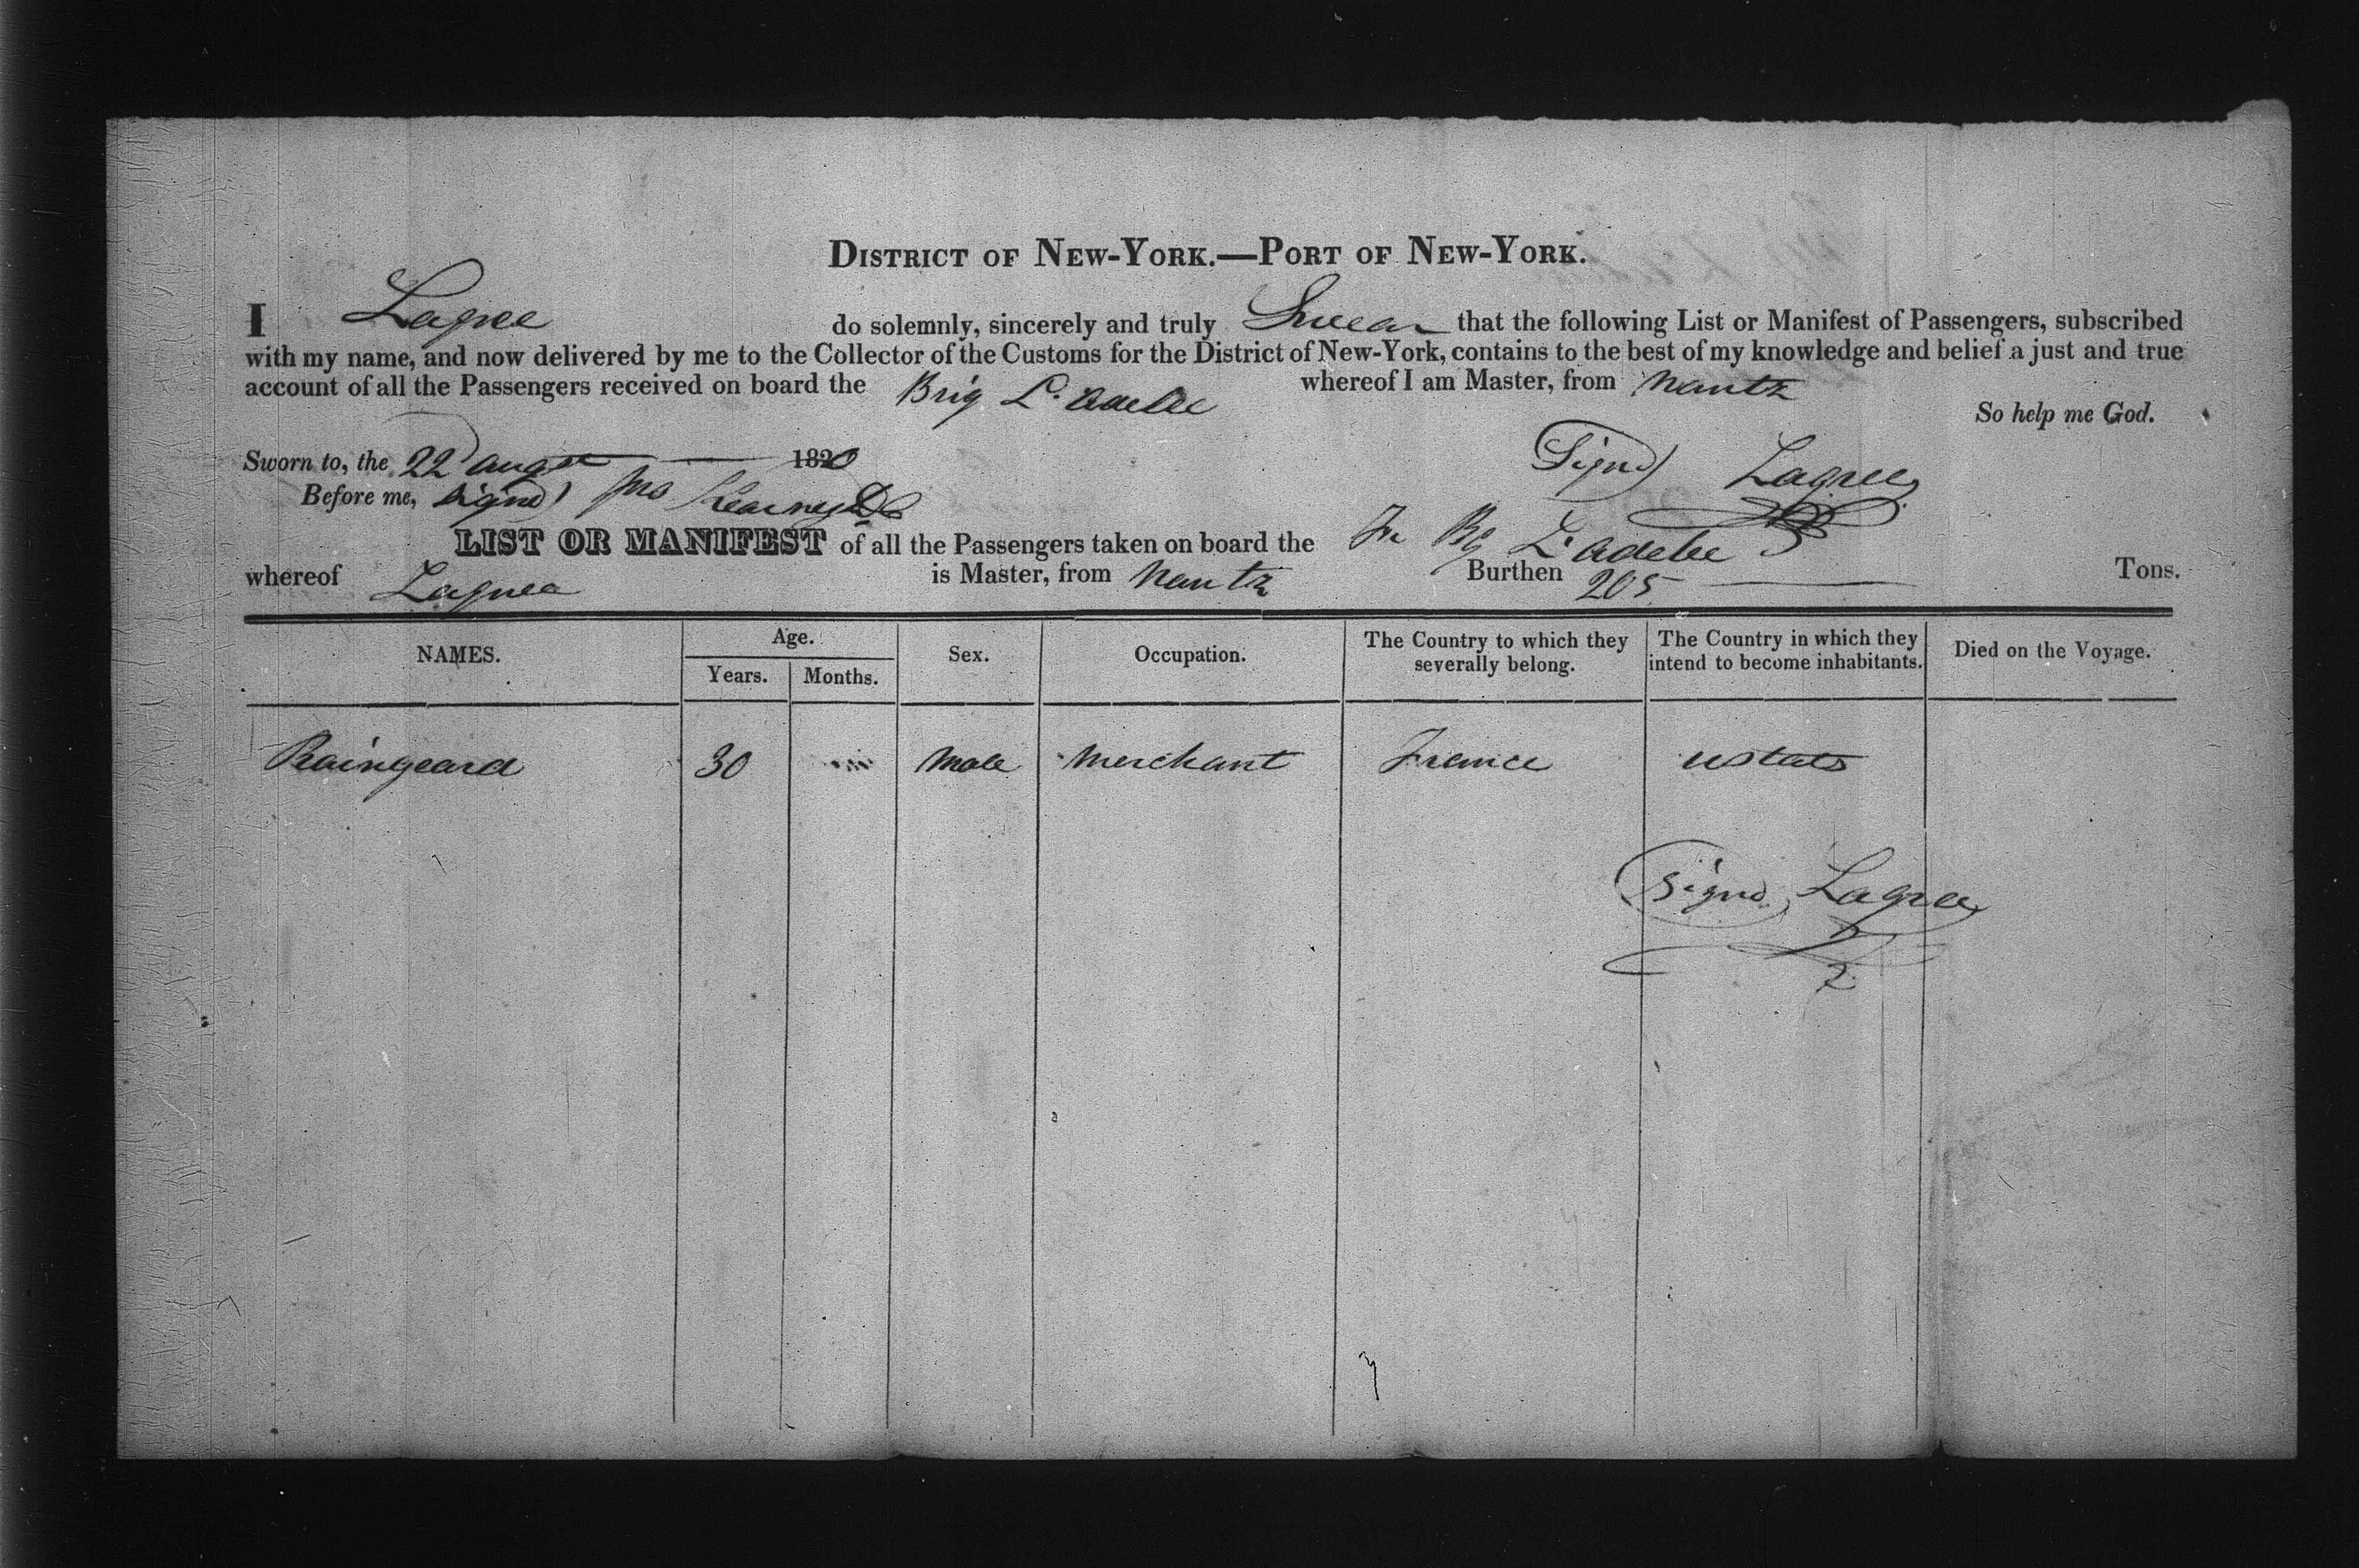 DISTRICT OF NEW-YORK.—PORT OF NEW-YORK.
I Lagree do solemnly, sincerely and truly Swear that the following List or Manifest of Passengers, subscribed
with my name, and now delivered by me to the Collector of the Customs for the District of New-York, contains to the best of my knowledge and belief a just and true
account of all the Passengers received on board the Brig L'Adele whereof I am Master, from Nantz
So help me God.
Sworn to, the 22d augst 1820 (Signd) Lagree
Before me, signd) Jno Kearney DC
LIST OR MANIFEST of all the Passengers taken on board the Fr Bg L'adele
whereof Lagree is Master, from Nantz Burthen 205 Tons.
NAMES. Age. Sex. Occupation. The Country to which they severally belong. The Country in which they intend to become inhabitants. Died on the Voyage.
Years. Months.
Raingeard 30 Male Merchant France ustates
(Signd) Lagree